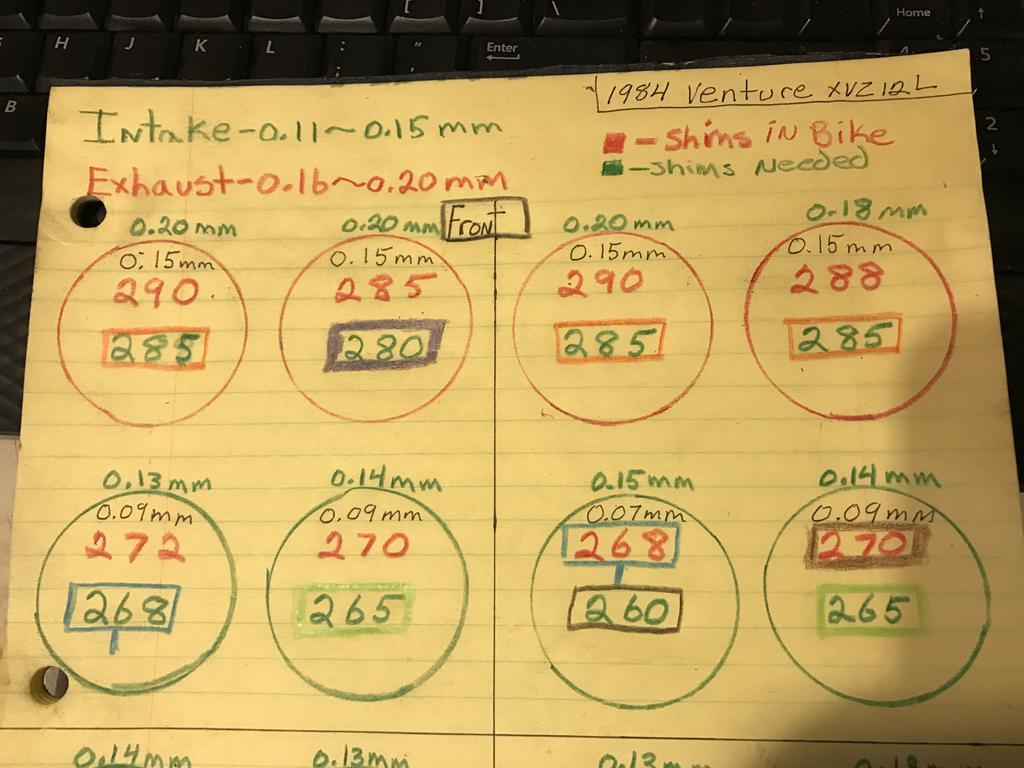 [ ] \ Home ↑
H J K L : " Enter 4 5
; '
B 2 ↓
1984 Venture XVZ12L
Intake-0.11~0.15mm
- Shims iN Bike
- Shims Needed
Exhaust-0.16~0.20mm
0.20mm 0.20mm Front 0.20mm 0.18mm
0.15mm 0.15mm 0.15mm 0.15mm
290 285 290 288
285 280 285 285
0.13mm 0.14mm 0.15mm 0.14mm
0.09mm 0.09mm 0.07mm 0.09mm
272 270 268 270
268 265 260 265
0.14mm 0.13mm 0.13mm